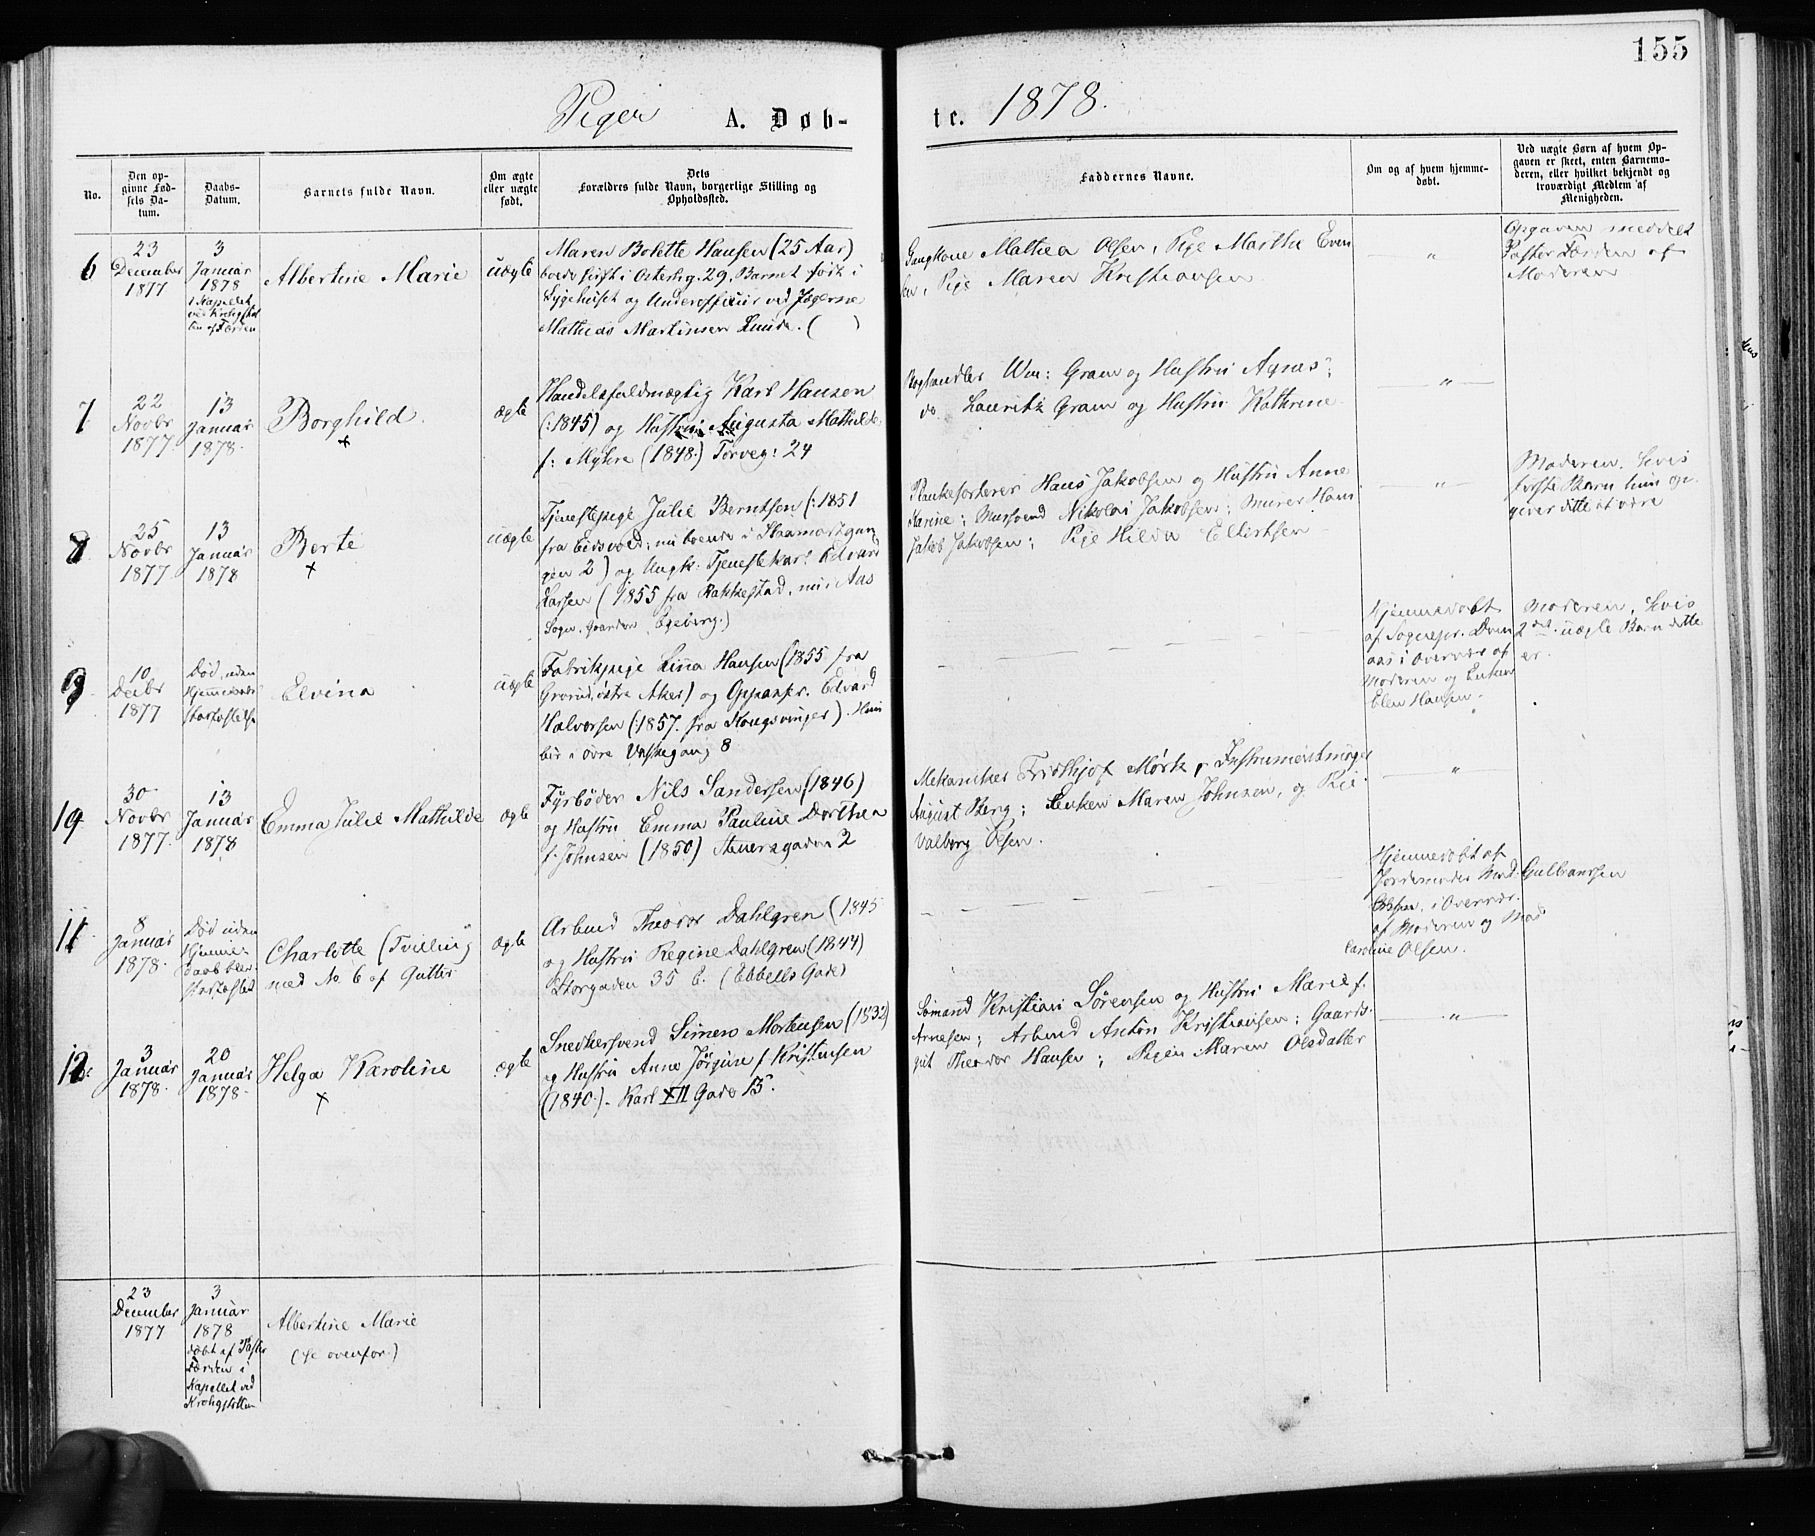 155
Piger A. Døb- te. 1878.
No.
Den op-
givne Fød-
sels Da-
tum.
Daabs-
Datum.
Barnets fulde Navn.
Om ægte
eller uægte
født.
Dets
Forældres fulde Navn, borgerlige Stilling og
Opholdssted.
Faddernes Navne.
Om og af hvem hjemme-
døbt.
Ved uægte Børn af hvem Op-
gaven er skeet, enten Barnemo-
deren, eller hvilket bekjendt og
troværdigt Medlem af
Menigheden.
6
23
December
1877
3
Januar
1878
i Kapellet
Albertine Marie
uægte
Maren Bolette Hansen (25 Aar)
boede sidst i Osterhg. 29, Barnet født i
Sygehuset og Underofficier ved Jægerne
Mathias Martinsen Lunde. ( )
Gangkone Mathea Olsen, Pige Marthe Even
sen, Pige Maren Kristiansen
"
Opgaven meddelt
Pastor Færden af
Moderen
7
22
Novbr
1877.
13
Januar
1878.
Borghild.
×
ægte
Handelsfuldmægtig Karl Hansen
(:1845) og Hustru Augusta Mathilde
f: Myhre (1848.) Torveg: 24
Boghandler Wm: Gram og Hustru Agnes;
do. Lauritz Gram og Hustru Kathrine.
"
8
25
Novbr
1877
13
Januar
1878
Berte
×
uægte
Tjenestepige Julie Berntsen (:1851
fra Eidsvold; nu boende i Haamandsgan
gen 2) og Ungk: Tjenestekarl Edvard
Larsen (1855 fra Rakkestad, nu i Aas
Sogn. Gaarden Egeberg.)
Plankesorterer Hans Jakobsen og Hustru Anne
Karine; Mursvend Nikolai Jakobsen; Murer Hans
Jakob Jakobsen; Pige Hilda Ellertsen
"
Moderen, hvis
første Barn hun op-
giver dette at være
9
10
Decbr
1877
Død, uden
Hjemmedaab
Elvina
uægte
Fabrikpige Lina Hansen (1855 fra
Grorud, østre Aker) og Oppasser. Edvard
Halvorsen (:1857. fra Kongsvinger). Hun
bor i øvre Vaskegang 8
Hjemmedøbt
af Sogneprs. Dom
aas i Overvær af
Moderen og Enken
Elen Hansen.
Moderen, hvis
2det uægte Barn dette
er.
10
30
Novbr
1877.
13
Januar
1878
Emma Julie Mathilde
ægte
Fyrbøder Nils Sandersen (1846)
og Hustru Emma Pauline Dorthea
f. Johnsen (1850) Stenersgaden 2
Mekaniker Fridthjof Mørk, Instrumentmager
August Berg; Enken Maren Johnsen, og Pige
Valborg Olsen.
"
11
8
Januar
1878.
Død uden
Hjemme-
daab
Charlotte (Tvilling
med No 6 af Gutter
ægte
Arbmd Theodor Dahlgren (1845
og Hustru Regine Dahlgren (1844)
Storgaden 35 E. (Ebbells Gade)
Hjemmedøbt af
Jordemoder Mad. Gulbranssen
i Overvær.
af Moderen og Mad
Caroline Olsen.
12
3
Januar
1878.
20
Januar
1878.
Helga Karoline
×
ægte
Snedkersvend Simen Mortensen (1832)
og Hustru Anne Jørgine f Kristensen
(1840.) Karl XII Gade 15.
Sømand Kristian Sørensen og Hustru Marie f.
Arnesen; Arbmd Anton Kristiansen; Gaards-
gut Theodor Hansen; Pigen Maren Olsdatter
"
23
December
1877
3
Januar
1878
døbt af Pastor
Færden i
Kapellet ved
Krohgstøtten
Albertine Marie
(se ovenfor.)